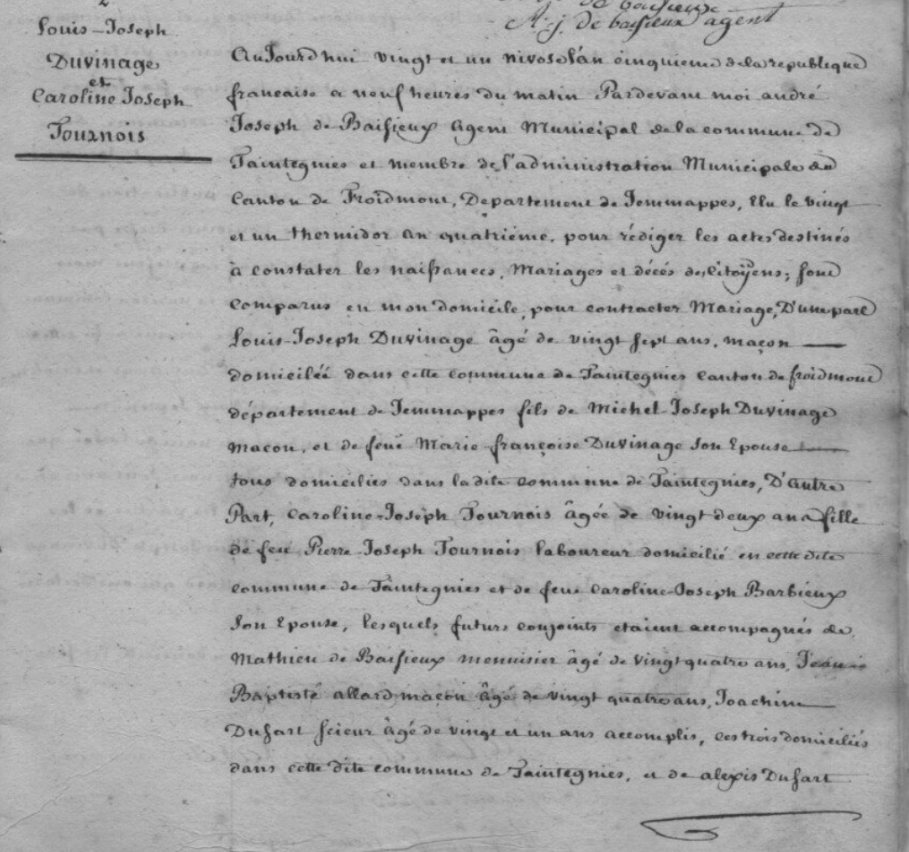 2
de baisieux
A. j. de baisieux agent
Louis-Joseph
Duvinage
et
Caroline Joseph
Tournois
Aujourd'hui vingt et un nivose l'an cinquieme de la republique
francaise a neuf heures du matin Pardevant moi andré
Joseph de Baisieux Agent Municipal de la commune de
Taintegnies et membre de l'administration Municipale du
Canton de Froidmont, Departement de Jemmappes, Elu le vingt
et un thermidor an quatriéme, pour rédiger les actes destinés
à constater les naissances, Mariages et décés des Citoÿens; sont
comparus en mon domicile, pour contracter Mariage, D'une part
Louis-Joseph Duvinage âgé de vingt sept ans, maçon
domiciliée dans cette commune de Taintegnies canton de froidmont
département de Jemmappes fils de Michel-Joseph Duvinage
macon, et de feue Marie-françoise Duvinage son Epouse
tous domiciliés dans la dite commune de Taintegnies, D'autre
Part, Caroline-Joseph Tournois âgée de vingt deux ans fille
de feu Pierre-Joseph Tournois laboureur domicilié en cette dite
commune de Taintegnies et de feue Caroline-Joseph Barbieux
son Epouse, lesquels futurs conjoints etaient accompagnés de
Mathieu de Baisieux menuisier âgé de vingt quatre ans, Jean
Baptiste allard maçon âgé de vingt quatre ans, Joachim
Dusart scieur âgé de vingt et un ans accomplis, ces trois domiciliés
dans cette dite commune de Taintegnies, et de alexis Dusart